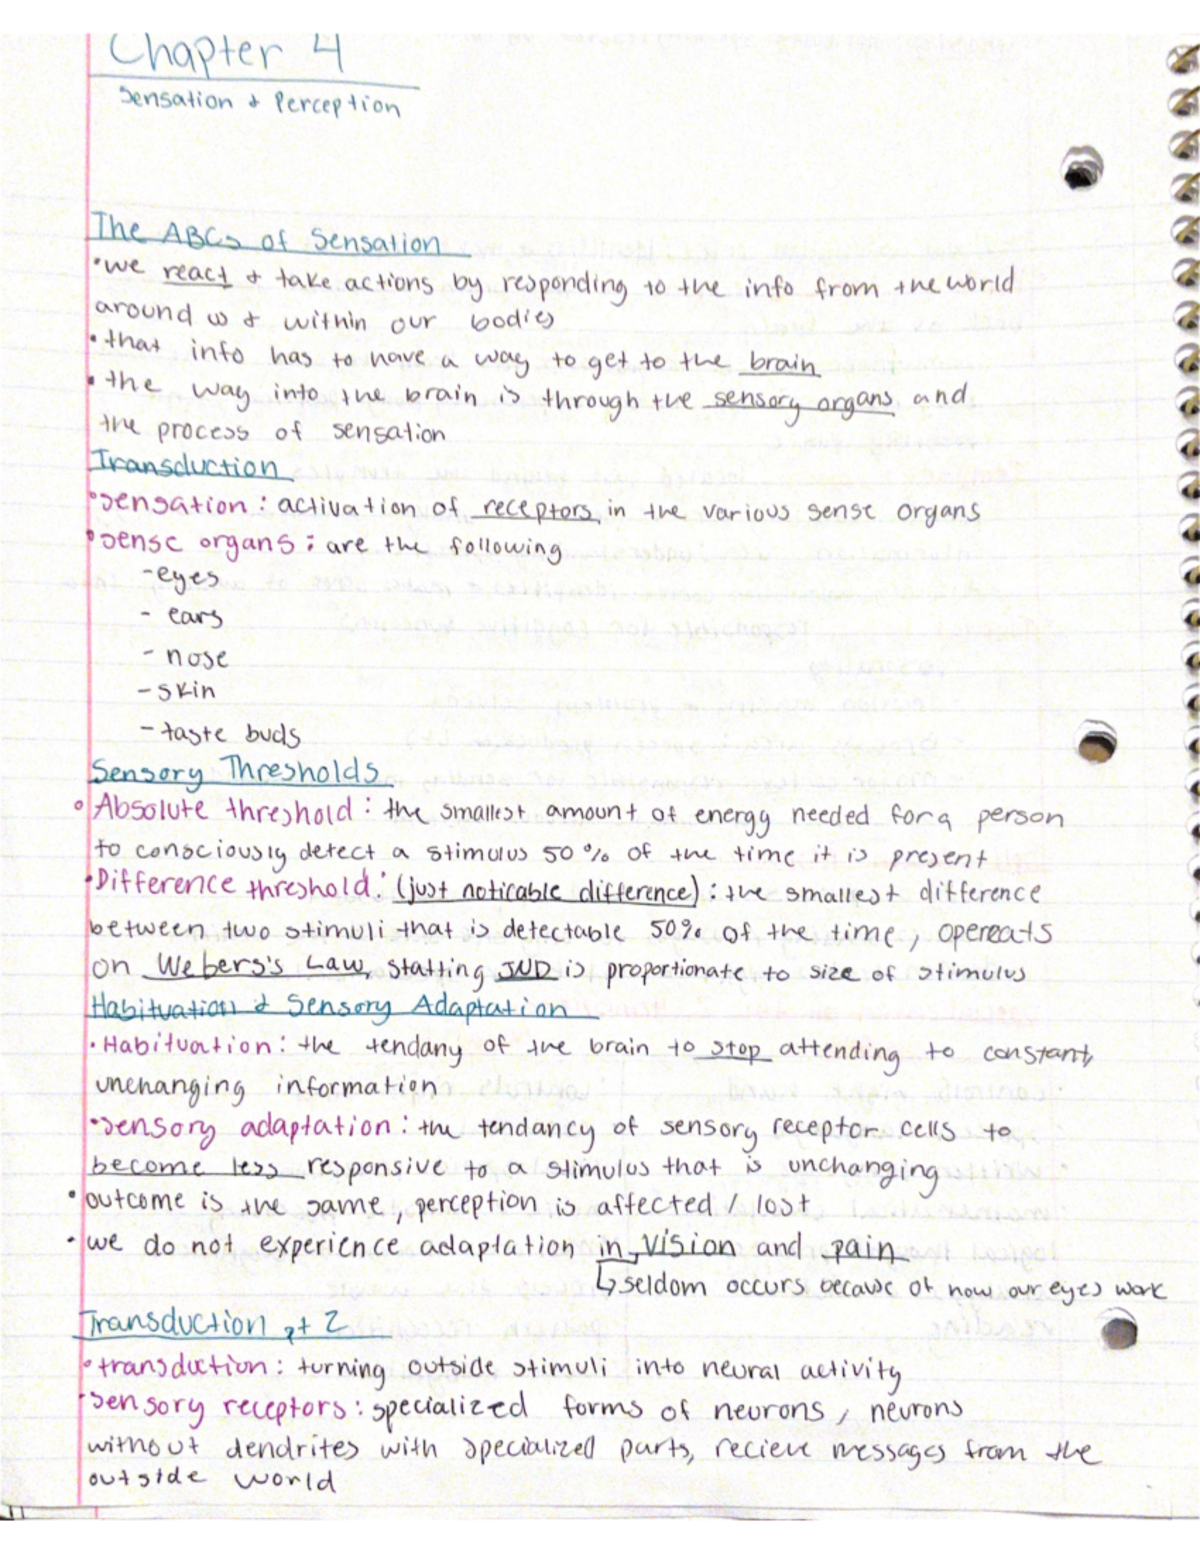 Chapter 4
Sensation & Perception
The ABCs of Sensation
•we react & take actions by responding to the info from the world
around us & within our bodies
•that info has to have a way to get to the brain
•the way into the brain is through the sensory organs and
the process of sensation
Transduction
•sensation: activation of receptors in the various sense organs
•sense organs: are the following
-eyes
- ears
- nose
-skin
-taste buds
Sensory Thresholds
•Absolute threshold: the smallest amount of energy needed for a person
to consciously detect a stimulus 50% of the time it is present
•Difference threshold: (just noticable difference): the smallest difference
between two stimuli that is detectable 50% of the time, opereats
on Webers's Law, statting JND is proportionate to size of stimulus
Habituation & Sensory Adaptation
•Habituation: the tendany of the brain to stop attending to constant,
unchanging information
•sensory adaptation: the tendancy of sensory receptor cells to
become less responsive to a stimulus that is unchanging
•outcome is the same, perception is affected / lost
•we do not experience adaptation in vision and pain
↳seldom occurs because of how our eyes work
Transduction pt 2
•transduction: turning outside stimuli into neural activity
•sensory receptors: specialized forms of neurons, neurons
without dendrites with specialized parts, recieve messages from the
outside world